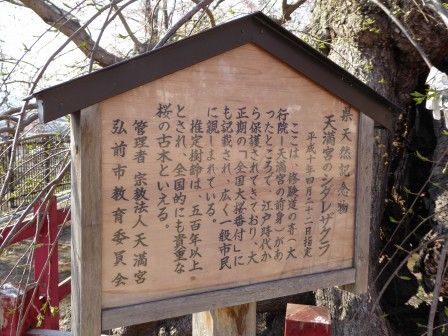 県天然記念物
天満宮のシダレザクラ
平成十年四月二十二日指定
ここは、修験道の寺（大
行院―天満宮の前身）があ
ったところで、江戸時代か
ら保護されてきており、大
正期の「全国大桜番付」に
も記載され、広く一般市民
に親しまれている。
推定樹齢は、五百年以上
とされ、全国的にも貴重な
桜の古木といえる。
管理者 宗教法人 天満宮
弘前市教育委員会